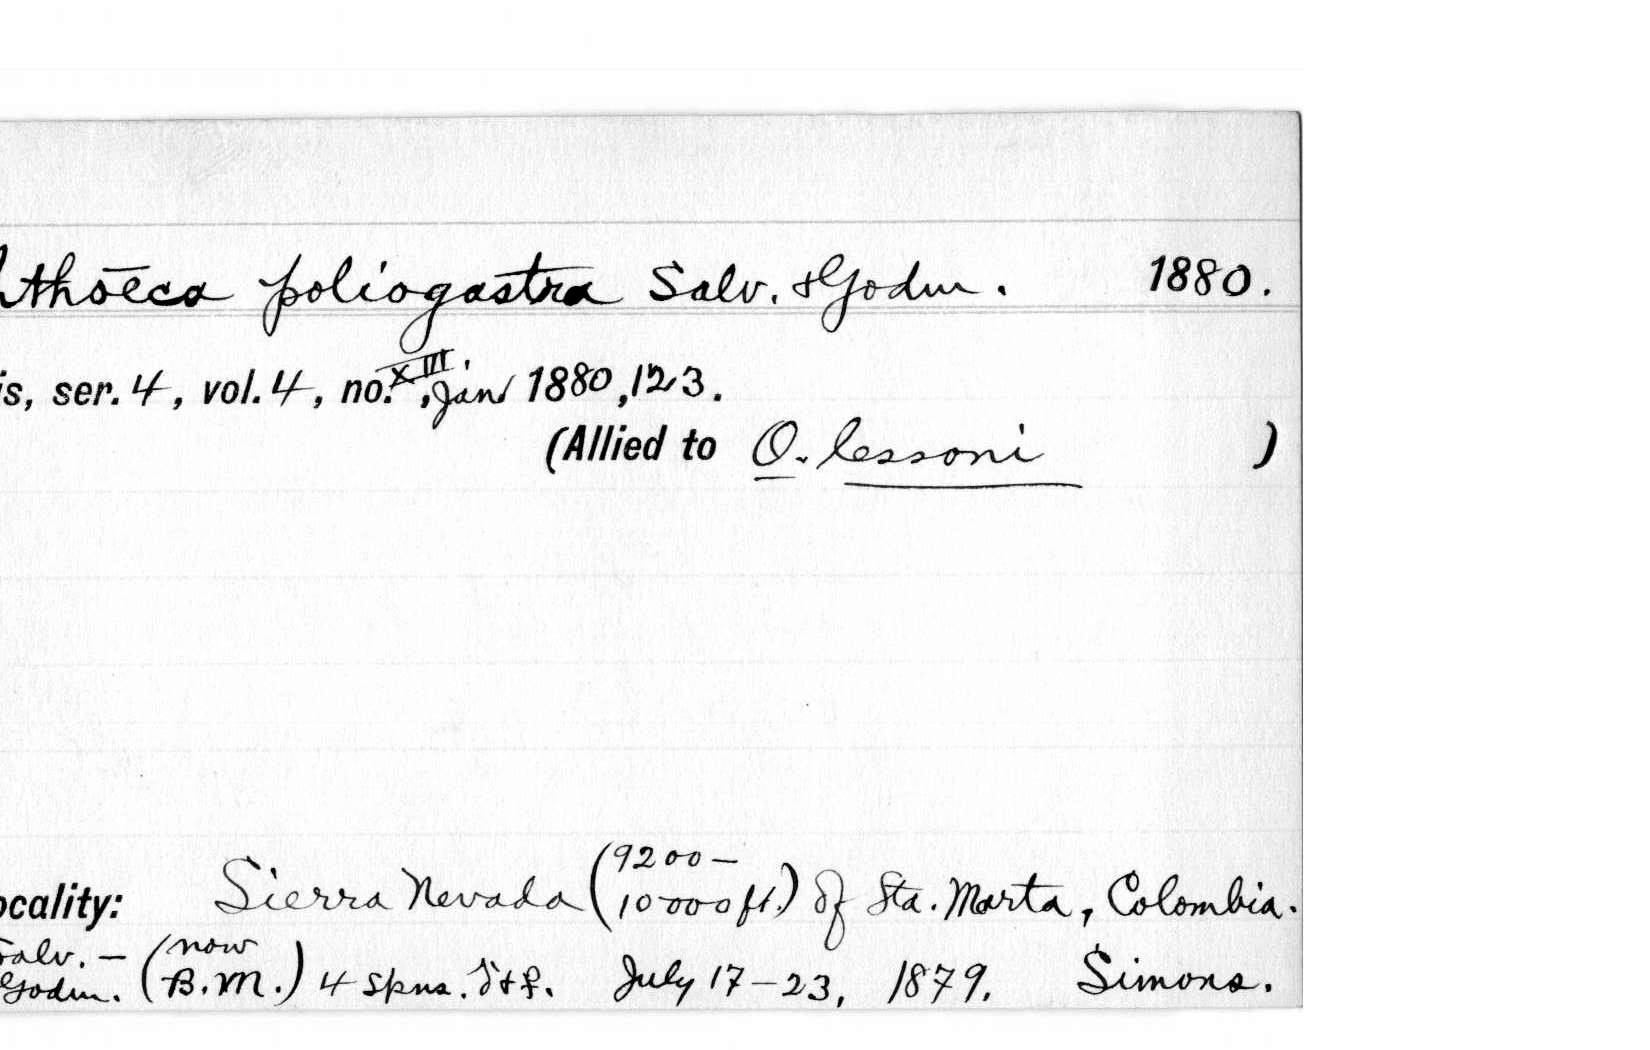 hthōeca poliogastra Salv. & Godm. 1880.
is, ser. 4, vol. 4, no. XIII, Jan 1880, 123.
(Allied to O. lessoni )
ocality: Sierra Nevada (9200 – 10000 ft.) of Sta. Marta, Colombia.
Salv. – Godm. (now B.M.) 4 spns. ♂ + ♀. July 17 – 23, 1879. Simons.